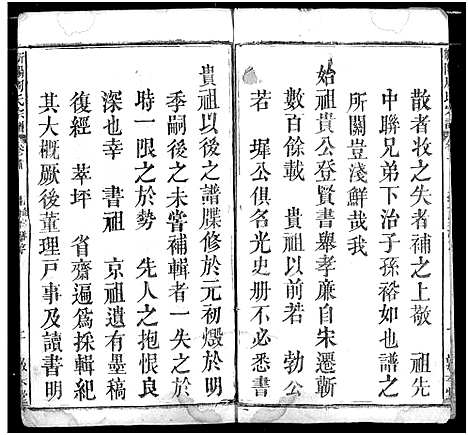 散者收之失者補之上敬　祖先
中聯兄弟下治子孫裕如也譜之
所關豈淺鮮哉我
始祖貴公登賢書舉孝廉自宋遷蘄
數百餘載　貴前而　勃公
若　墀公俱名光史册不必悉書
貴祖以後之譜牒修於元初燬於明
季嗣後之未嘗補輯者一失之於
時一限之於勢　先人之抱恨良
深也幸　書祖　京祖遺有墨稿
復經　萃坪　省齋遍爲採輯紀
其大概厥後董理戸事及讀書明